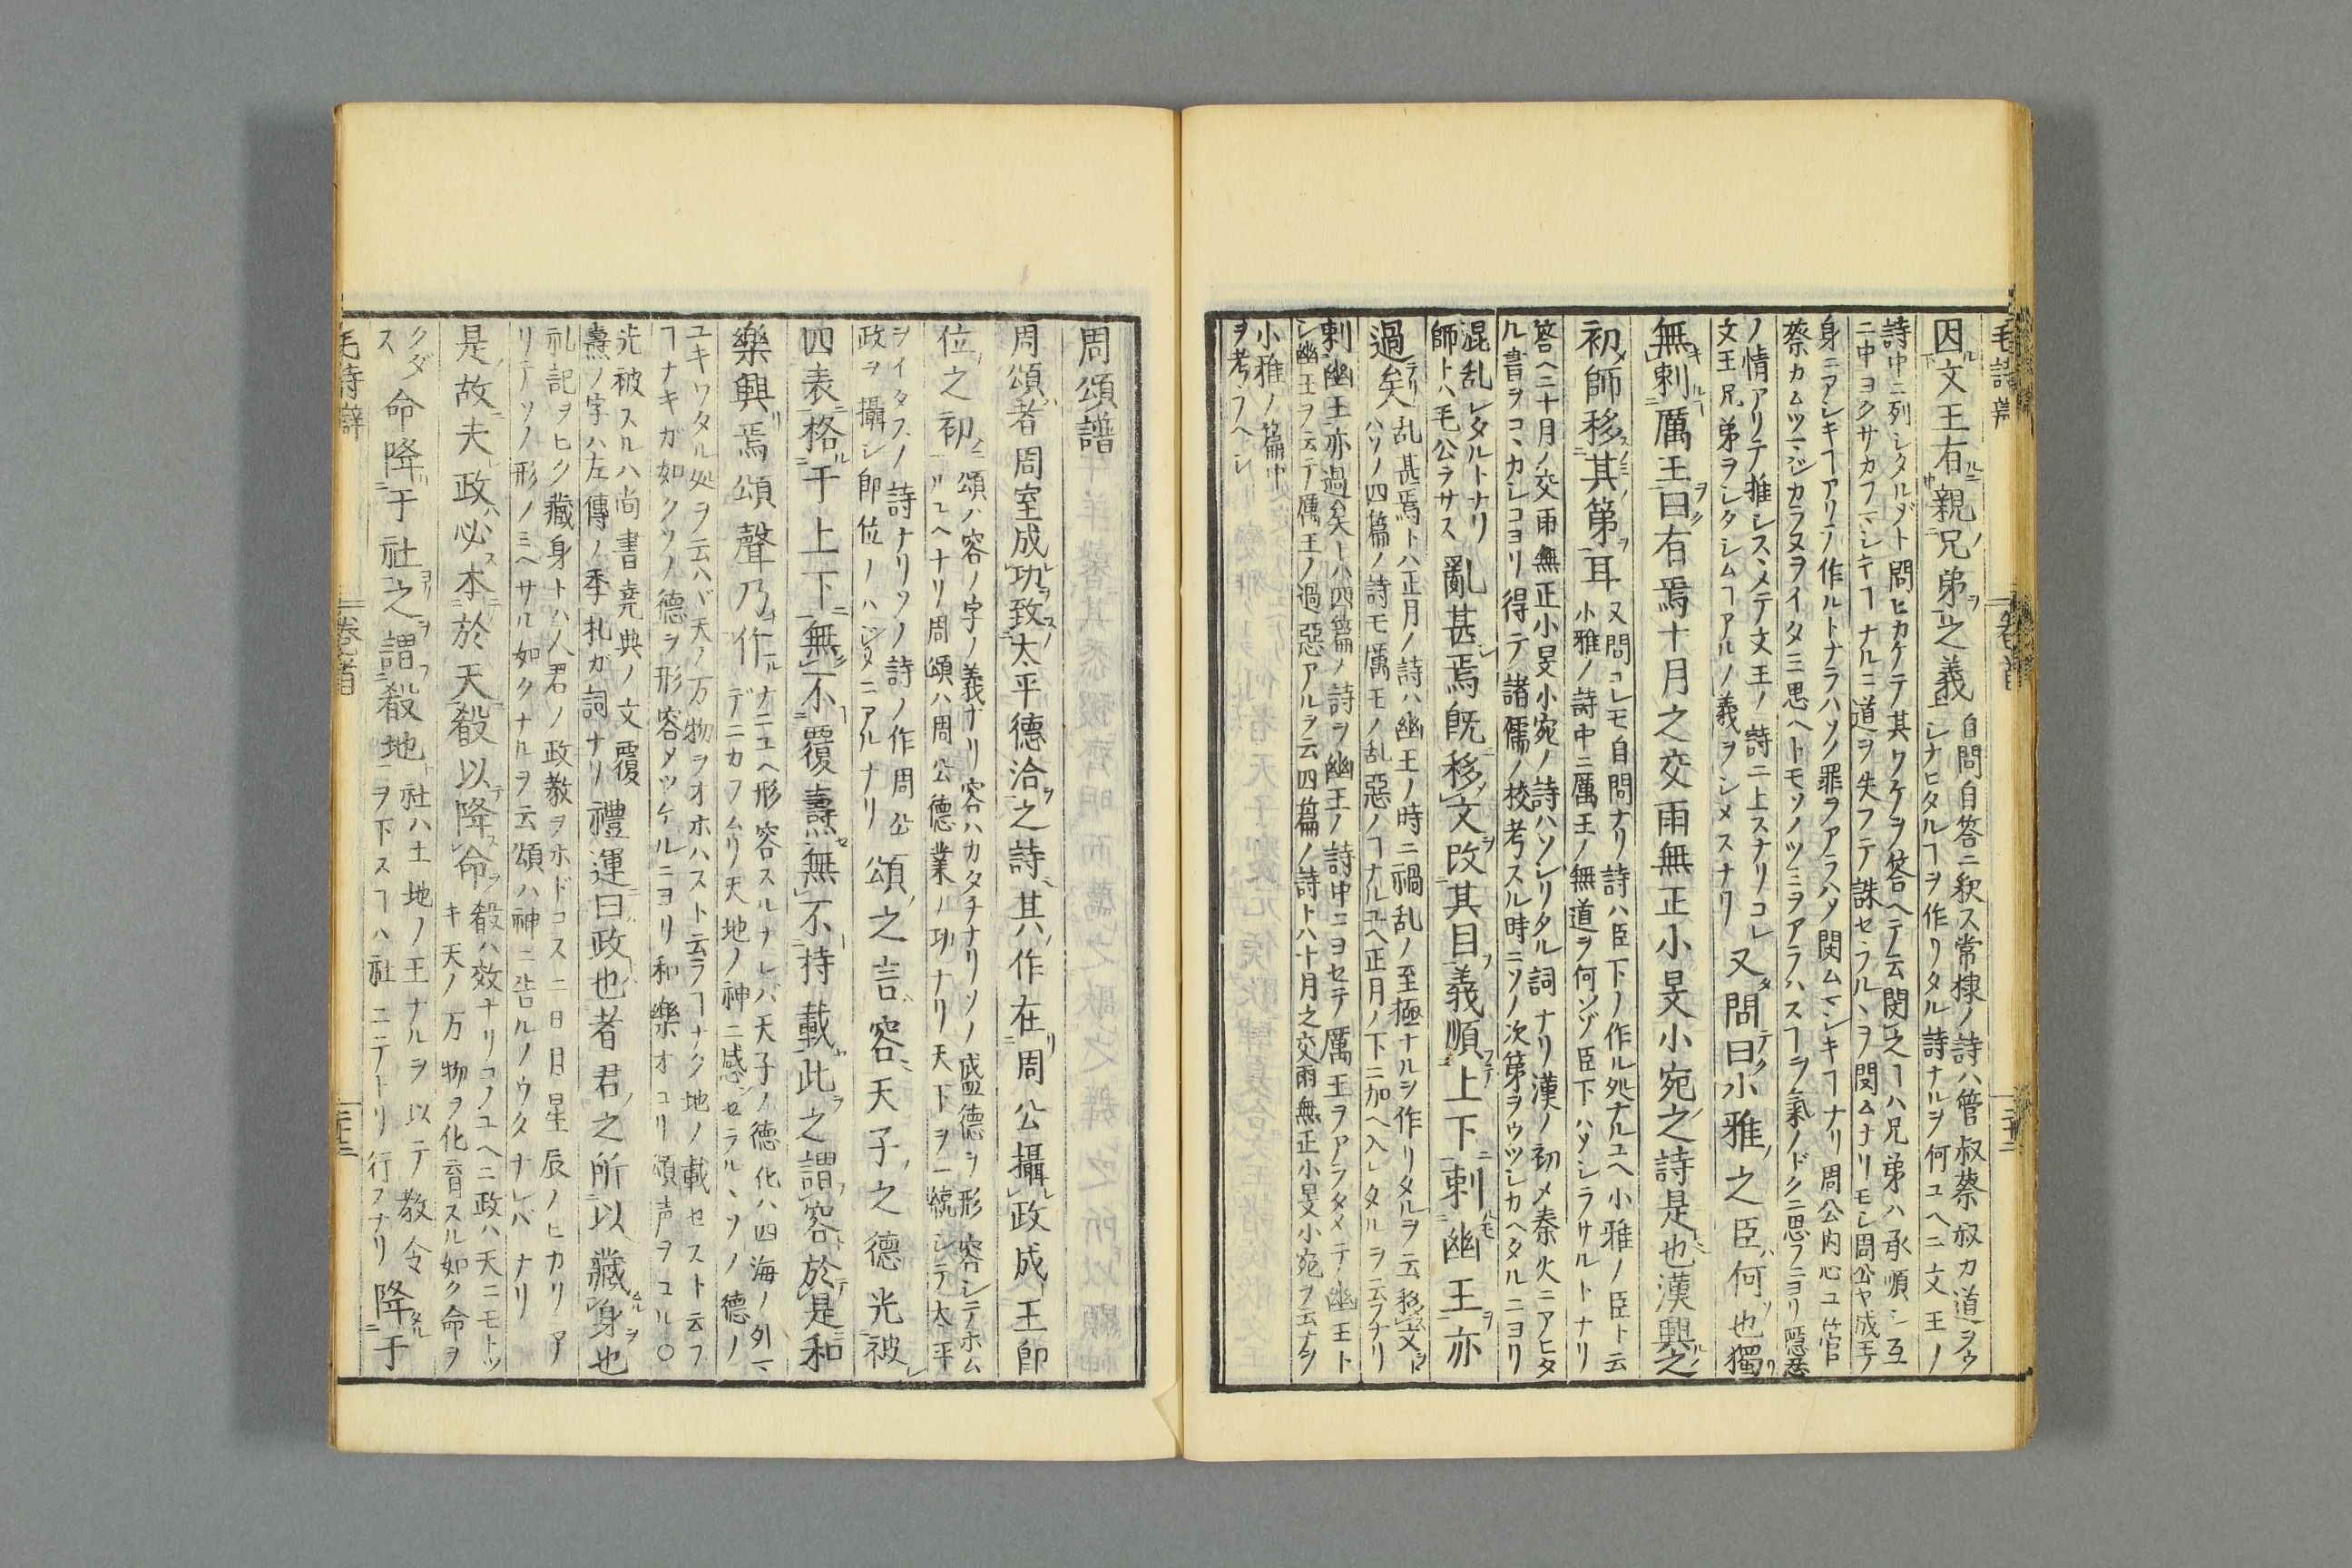 因文王有親兄弟之義
自問自答ニ釈ス常棣ノ詩ハ管叔蔡叔カ道ヲウ
シナヒタルヿヲ作リタル詩ナルヲ何ユヘニ文王ノ
詩中ニ列シタルゾト問ヒカケテ其ワケヲ答ヘテ云閔之ヿハ兄弟ハ承順シ互
ニ中ヨクサカフマシキヿナルニ道ヲ失フテ誅セラルヽヲ閔ムナリモシ周公ヤ成王ノ
身ニアシキヿアリテ作ルトナラハソノ罪ヲアラハソ閔ムマシキヿナリ周公内心ユ管
蔡カムツマジカラヌヲイタミ思ヘトモソノツミヲアラハスヿヲ氣ノドクニ思フニヨリ隠忍
ノ情アリテ推シスヽメテ文王ノ詩ニ上スナリコレ
文王兄弟ヲシタシムヿアルノ義ヲシメスナリ
又問曰小雅之臣何也獨
無刺厲王曰有焉十月之交雨無正小旻小宛之詩是也漢興之
初師移其第耳
又問コレモ自問ナリ詩ハ臣下ノ作ル処ナルユヘ小雅ノ臣ト云
小雅ノ詩中ニ厲王ノ無道ヲ何ゾゾ臣下ハソシラサルトナリ
答ヘニ十月ノ交雨無正小旻小宛ノ詩ハソシリタル詞ナリ漢ノ初メ秦火ニアヒタ
ル書ヲコヽカシコヨリ得テ諸儒ノ校考スル時ニソノ次第ヲウツシカヘタルニヨリ
混乱シタルトナリ
師トハ毛公ヲサス
亂甚焉既移文改其目義順上下刺幽王亦
過矣
乱甚焉トハ正月ノ詩ハ幽王ノ時ニ禍乱ノ至極ナルヲ作リタルヲ云移文ト
ハソノ四篇ノ詩モ厲王ノ乱惡ノヿナルユヘ正月ノ下ニ加ヘ入レタルヲ云フナリ
刺幽王亦過矣トハ四篇ノ詩ヲ幽王ノ詩中ニヨセテ厲王ヲアラタメテ幽王ト
シ幽王ヲ云テ厲王ノ過惡アルヲ云四篇ノ詩トハ十月之交雨無正小旻小宛ヲ云ナリ
小雅ノ篇中
ヲ考フヘシ
周頌譜
周頌者周室成功致太平德洽之詩其作在周公攝政成王即
位之初
頌ハ容ノ字ノ義ナリ容ハカタチナリソノ盛德ヲ形容シテホム
ルユヘナリ周頌ハ周公德業ノ功ナリ天下ヲ一統シテ太平
ヲイタスノ詩ナリソノ詩ノ作周公
政ヲ攝シ即位ノハジメニアルナリ
頌之言容天子之德光被
四表格于上下無不覆燾無不持載此之謂容於是和
樂興焉頌聲乃作
ナニユヘ形容スルナレバ天子ノ德化ハ四海ノ外マ
デニカフムリ天地ノ神ニ感セラルヽソノ德ノ
ユキワタル処ヲ云ハヾ天ノ万物ヲオホハスト云ラヿナク地ノ載セスト云フ
ヿナキガ如クソノ德ヲ形容メツケルニヨリ和樂オコリ頌声ヲコル〇
光被スルハ尚書堯典ノ文覆
燾ノ字ハ左傳ノ季札ガ詞ナリ
禮運曰政也者君之所以藏身也
礼記ヲヒク藏身トハ人君ノ政教ヲホドコスニ日月星辰ノヒカリアリ
テソノ形ノミヘサル如クナルヲ云頌ハ神ニ告ルノウタナレバナリ
是故夫政必本於天殽以降命
殽ハ效ナリコノユヘニ政ハ天ニモトツ
キ天ノ万物ヲ化育スル如ク命ヲ
クダ
ス
命降于社之謂殽地
社ハ土地ノ王ナルヲ以テ教令
ヲ下スヿハ社ニテトリ行フナリ
降于
毛詩辟
卷首